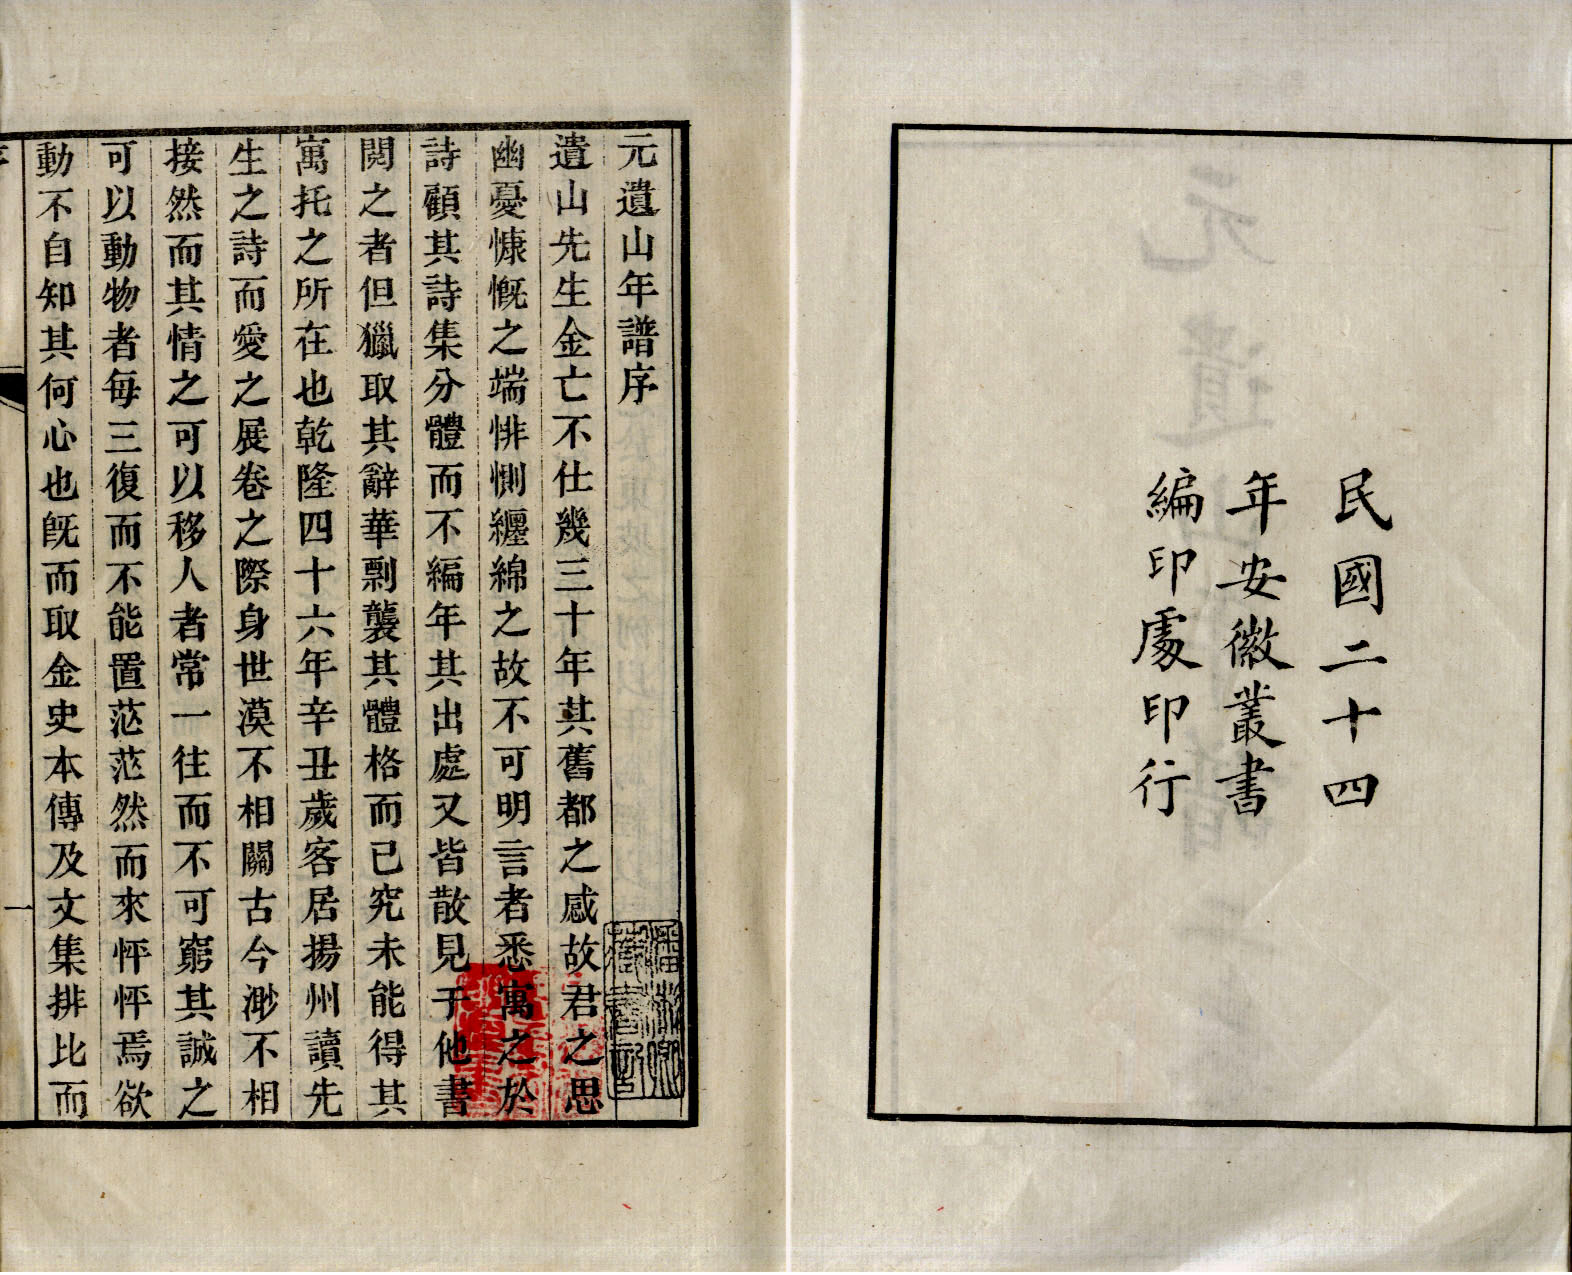 民國二十四
年安徽叢書
編印處印行
元遺山年譜序
遺山先生金亡不仕幾三十年其舊都之感故君之思
幽憂慷慨之端悱惻纏綿之故不可明言者悉寓之於
詩顧其詩集分體而不編年其出處又皆散見于他書
閱之者但獵取其辭華剽襲其體格而已究未能得其
寓托之所在也乾隆四十六年辛丑歲客居揚州讀先
生之詩而愛之展卷之際身世漠不相關古今渺不相
接然而其情之可以移人者常一往而不可窮其誠之
可以動物者每三復而不能置茫茫然而來怦怦焉欲
動不自知其何心也旣而取金史本傳及文集排比而
一